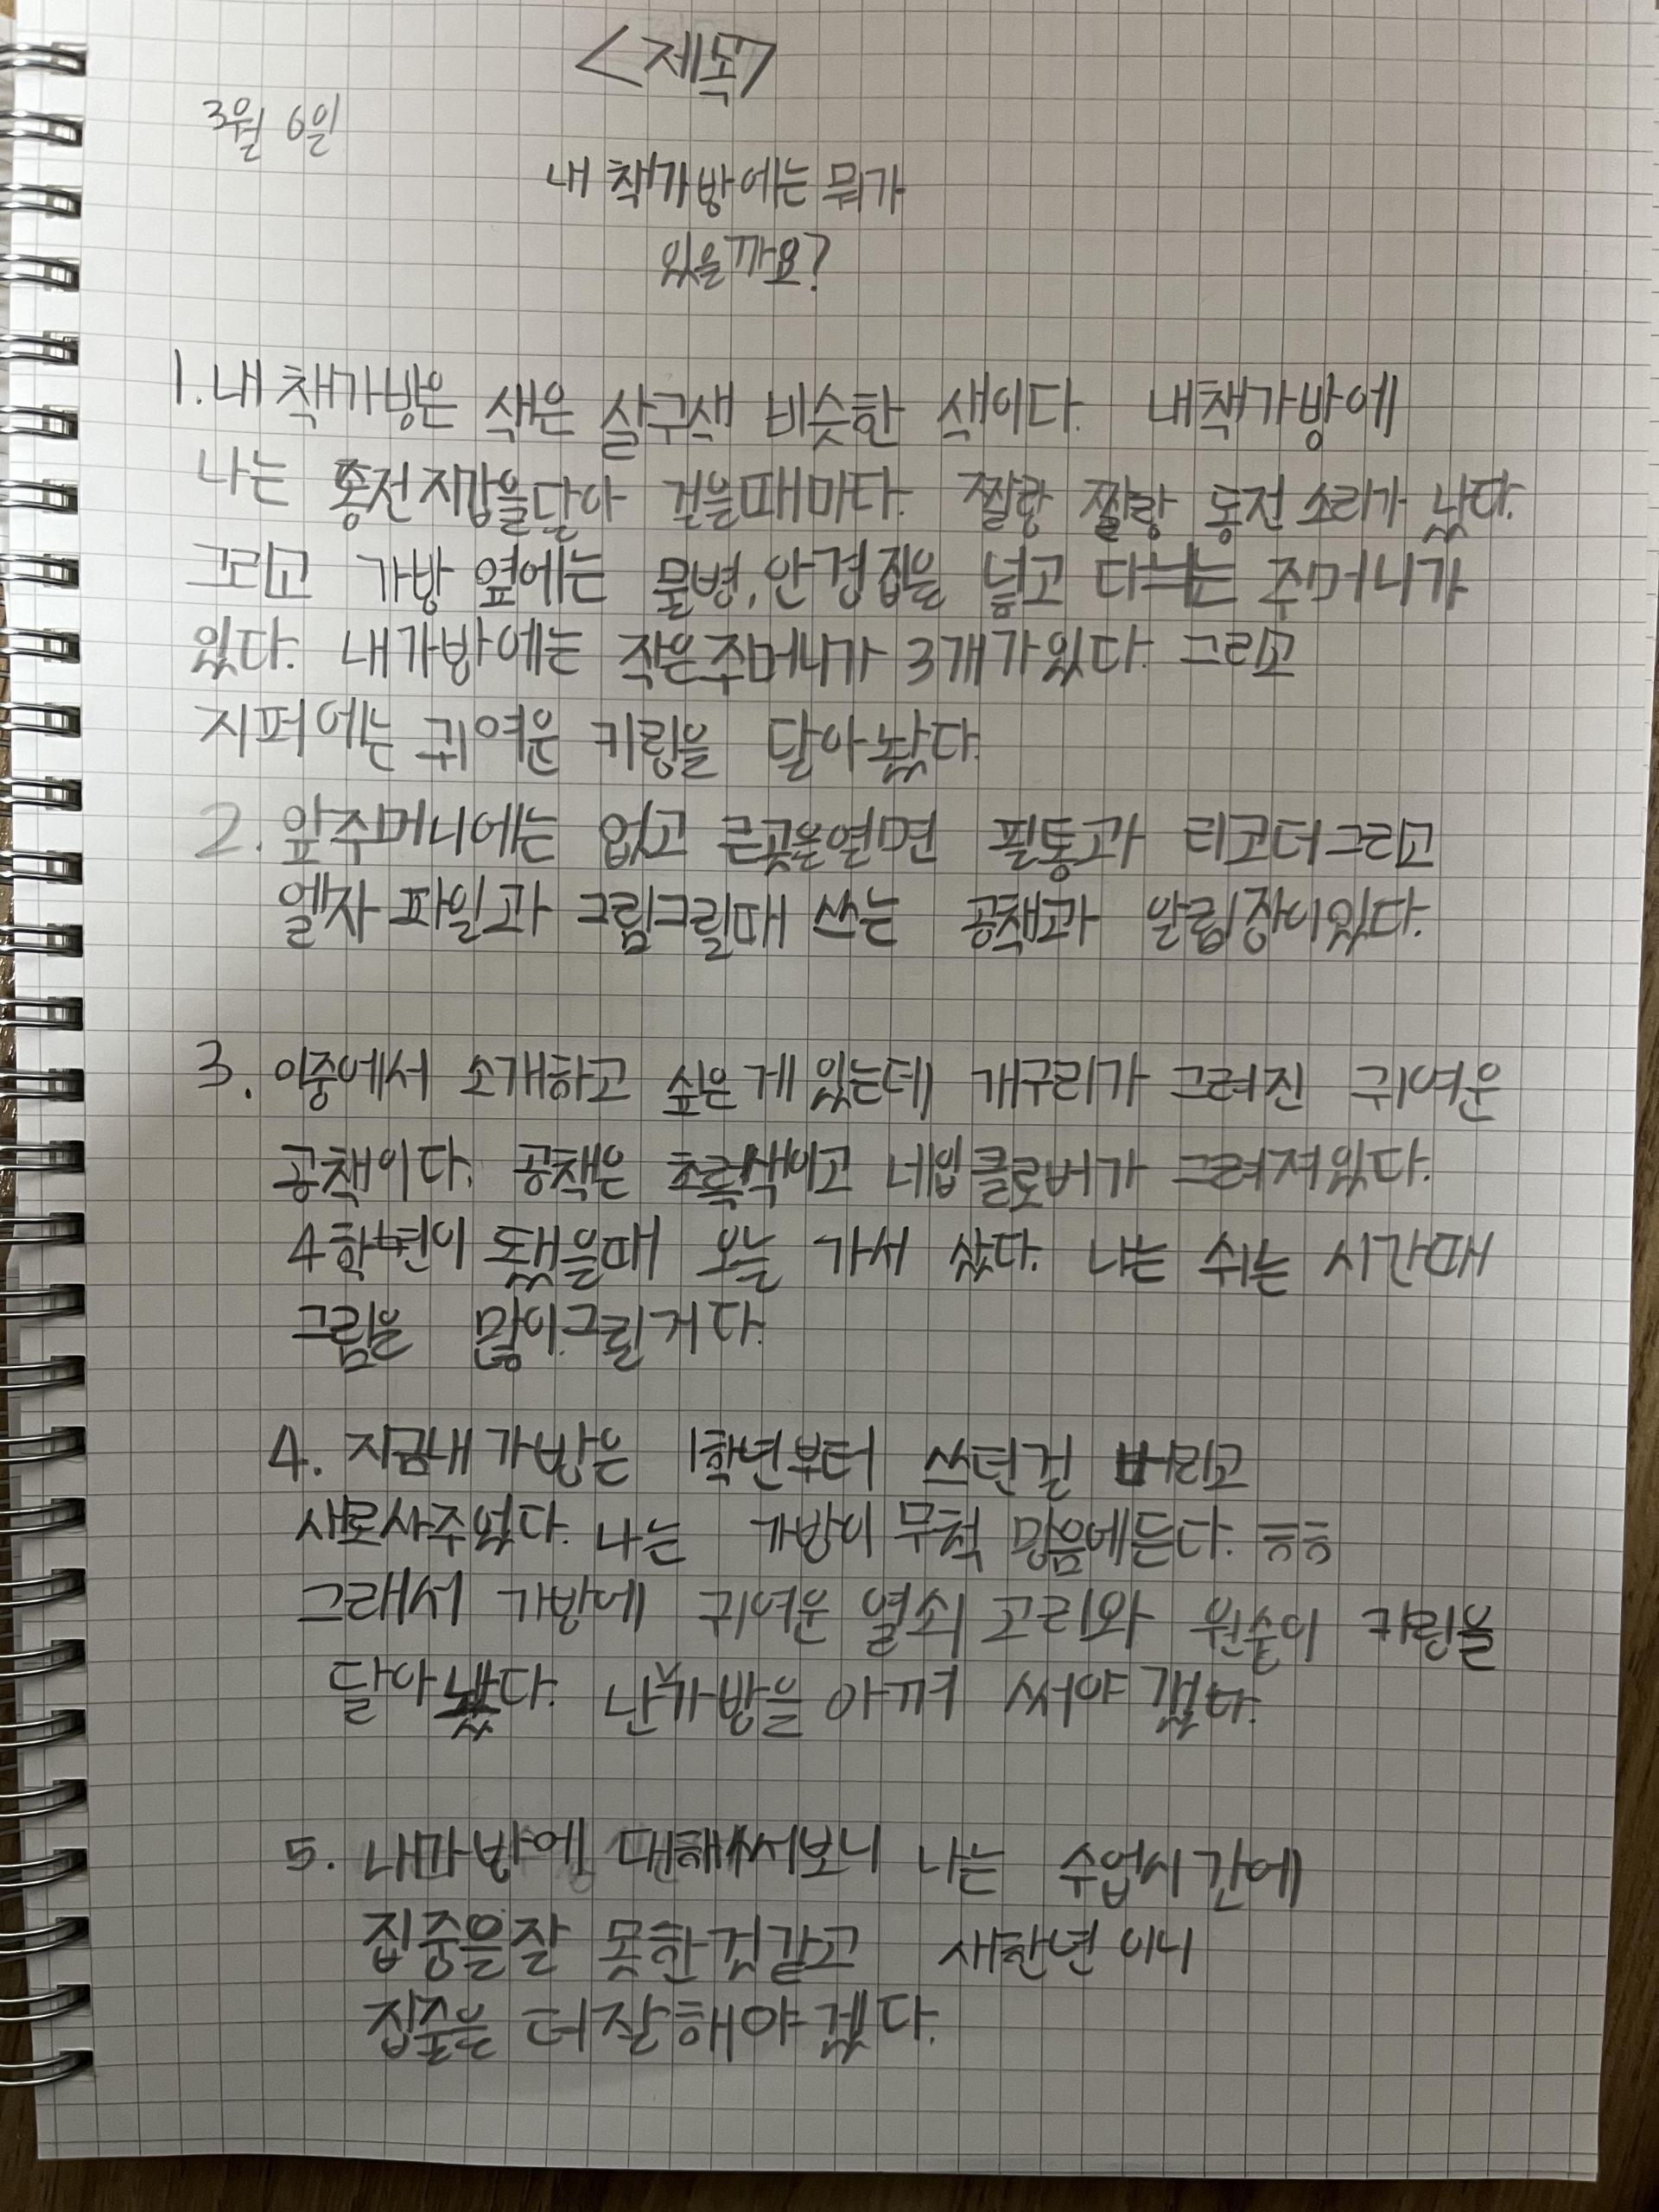 <제목>
3월 6일
내 책가방에는 뭐가
있을까요?
1. 내 책가방은 색은 살구색 비슷한 색이다. 내책가방에
나는 동전지갑을달아 걷을때마다. 짤랑 짤랑 동전소리가 났다.
그리고 가방 옆에는 물병, 안경집을 넣고 다니는 주머니가
있다. 내가방에는 작은주머니가 3개가있다. 그리고
지퍼에는 귀여운 키링을 달아놨다.
2. 앞주머니에는 없고 큰곳을열면 필통과 리코더그리고
엘자파일과 그림그릴때 쓰는 공책과 알림장이있다.
3. 이중에서 소개하고 싶은게있는데 개구리가 그려진 귀여운
공책이다. 공책은 초록색이고 네잎클로버가 그려져있다.
4학년이 됐을때 오늘 가서 샀다. 나는 쉬는 시간때
그림을 많이그릴거다.
4. 지금내가방은 1학년부터 쓰던걸 버리고
새로사주었다. 나는 가방이 무척 맘음에든다. ㅎㅎ
그래서 가방에 귀여운 열쇠 고리와 원숭이 키링을
달아놨다. 난 가방을 아껴 써야겠다.
5. 내가방에 대해써보니 나는 수업시간에
집중을잘 못한것같고 새학년이니
집중을 더잘해야겠다.